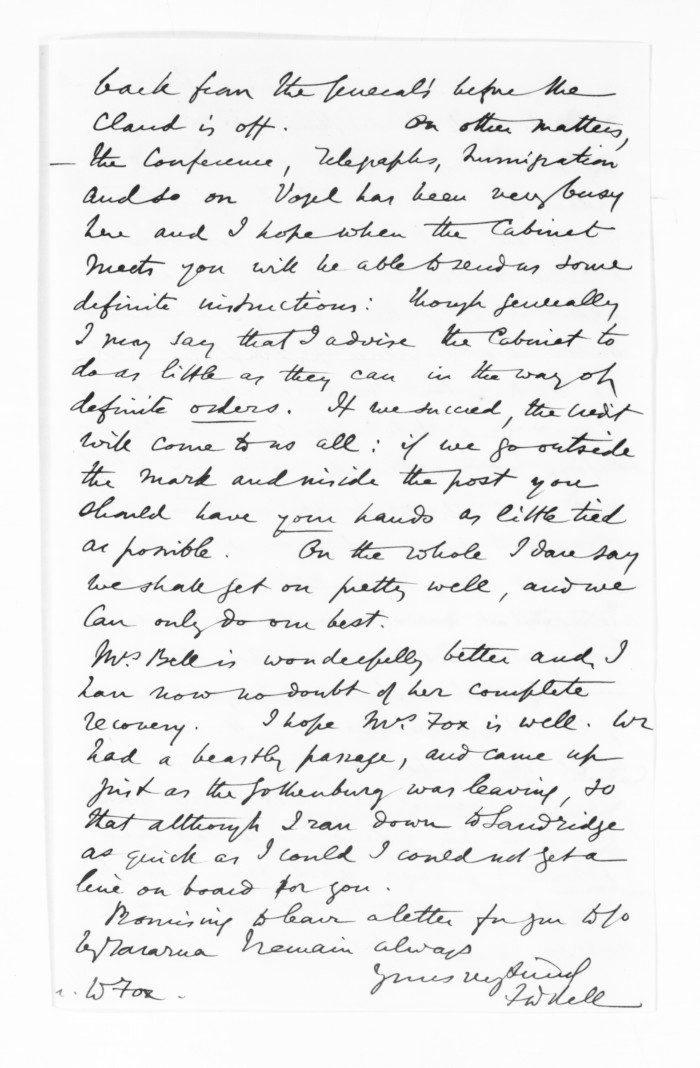 back from the General's before the
Claud is off. On other matters,
– the Conference, Telegraphs, Immigration
and so on Vogel has been very busy
here and I hope when the Cabinet
meets you will be able to send us some
definite instructions: though generally
I may say that I advise the Cabinet to
do as little as they can in the way of
definite orders. If we succeed, the credit
will come to us all: if we go outside
the mark and inside the post you
should have your hands as little tied
as possible. On the whole I dare say
we shall get on pretty well, and we
can only do our best.
Mrs Bell is wonderfully better and I
have now no doubt of her complete
recovery. I hope Mrs. Fox is well. We
had a beastly passage, and came up
just as the Gothenburg was leaving, so
that although I ran down to Sandridge
as quick as I could I could not get a
line on board for you.
Promising to leave a letter for you to go
by Tararua I remain always
Yours very
FDBell
W Fox.